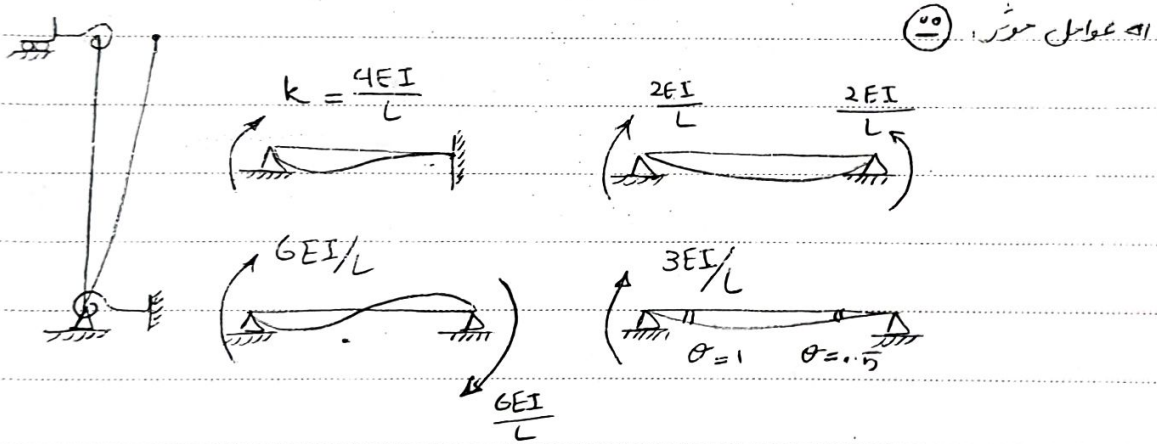 عوامل موثر.
k = 4EI/L
2EI/L 2EI/L
6EI/L
6EI/L
3EI/L
θ=1 θ=0.5